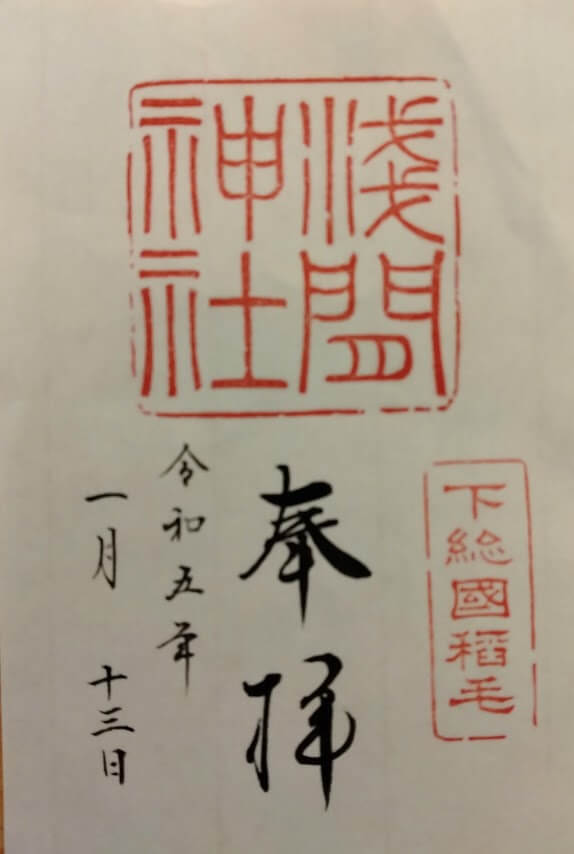 浅間
神社
下総國稻毛
奉拝
令和五年
一月 十三日